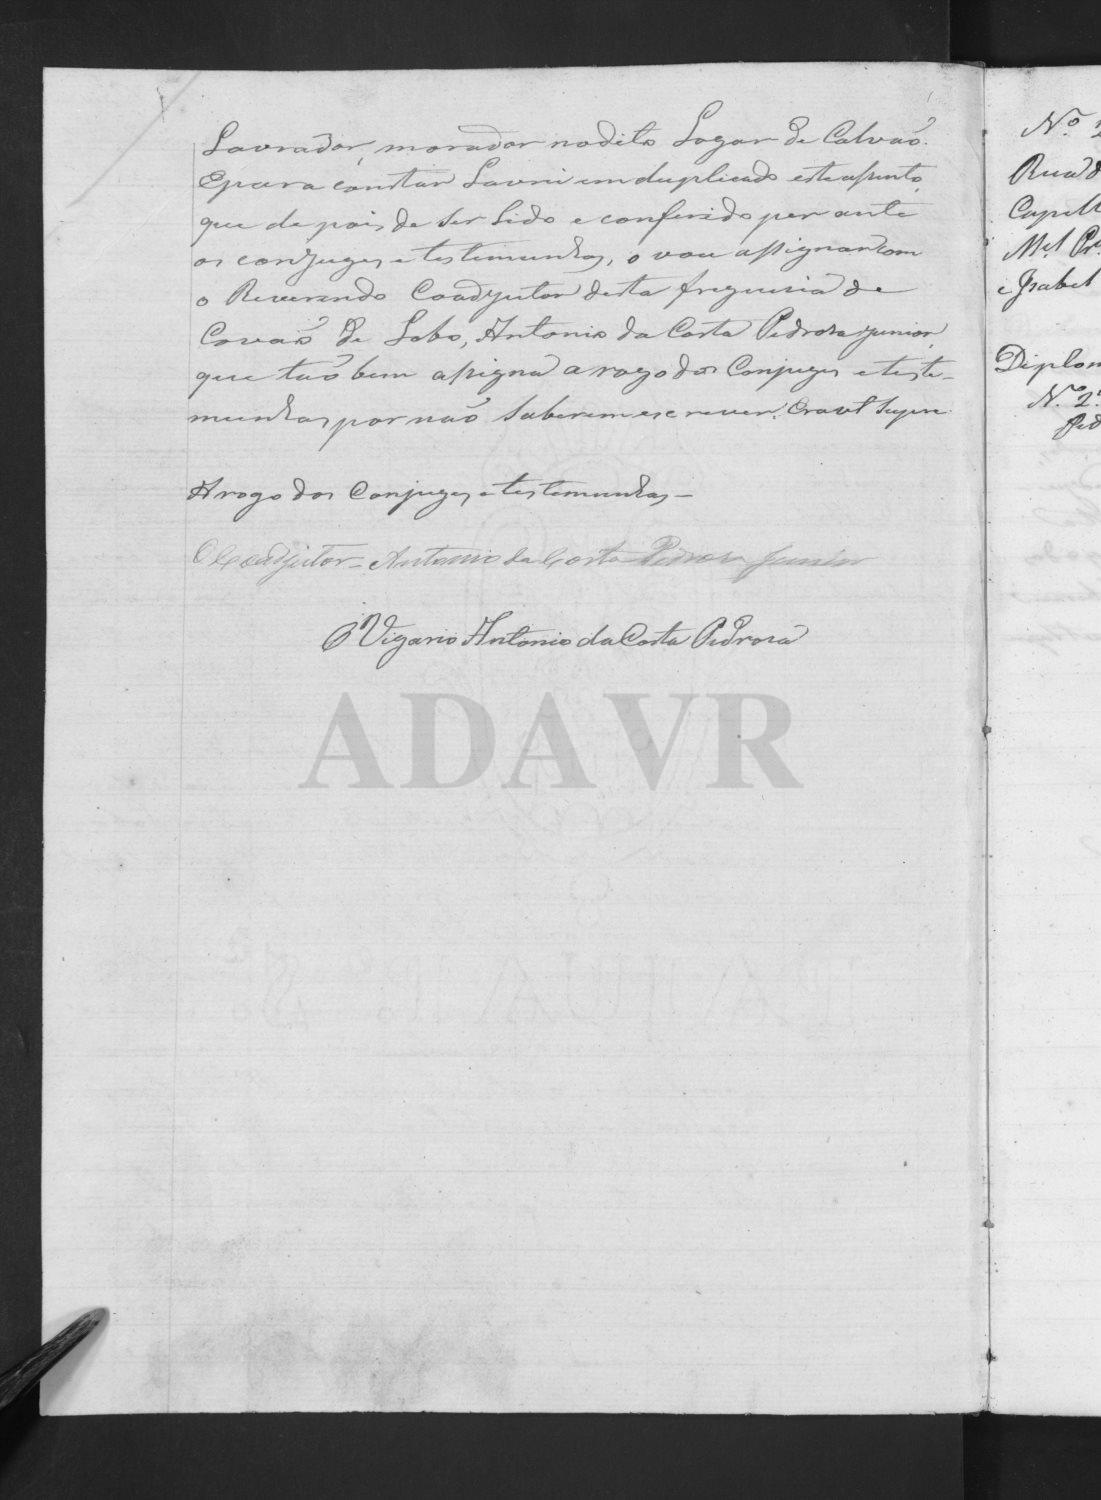 Lavrador, morador no dito Logar de Calvaõ.
E para constar Lavrei em duplicado este assento,
que de pois de ser Lido e conferido per ante
os conjuges e testemunhas, o vou assignar com
o Reverendo Coadjutor desta freguesia de
Covaõ de Lobo, Antonio da Costa Pedrosa junior,
que taõ bem assigna a rogo dos Conjuges e teste-
munhas por naõ saberem escrever. Era ut supra.
A rogo dos Conjuges e testemunhas –
O Coadjutor – Antonio da Costa Pedrosa Junior
O Vigario Antonio da Costa Pedrosa
ADAVR
N.º 2
Rua d
Capell
Mel Pr
e Isabel
Diplom
N.º 2